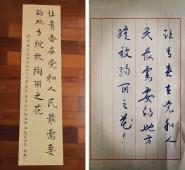 让青春在党和人民最需要
的地方绽放绚丽之花
让青春在党和人
民最需要的地方
绽放绚丽之花！